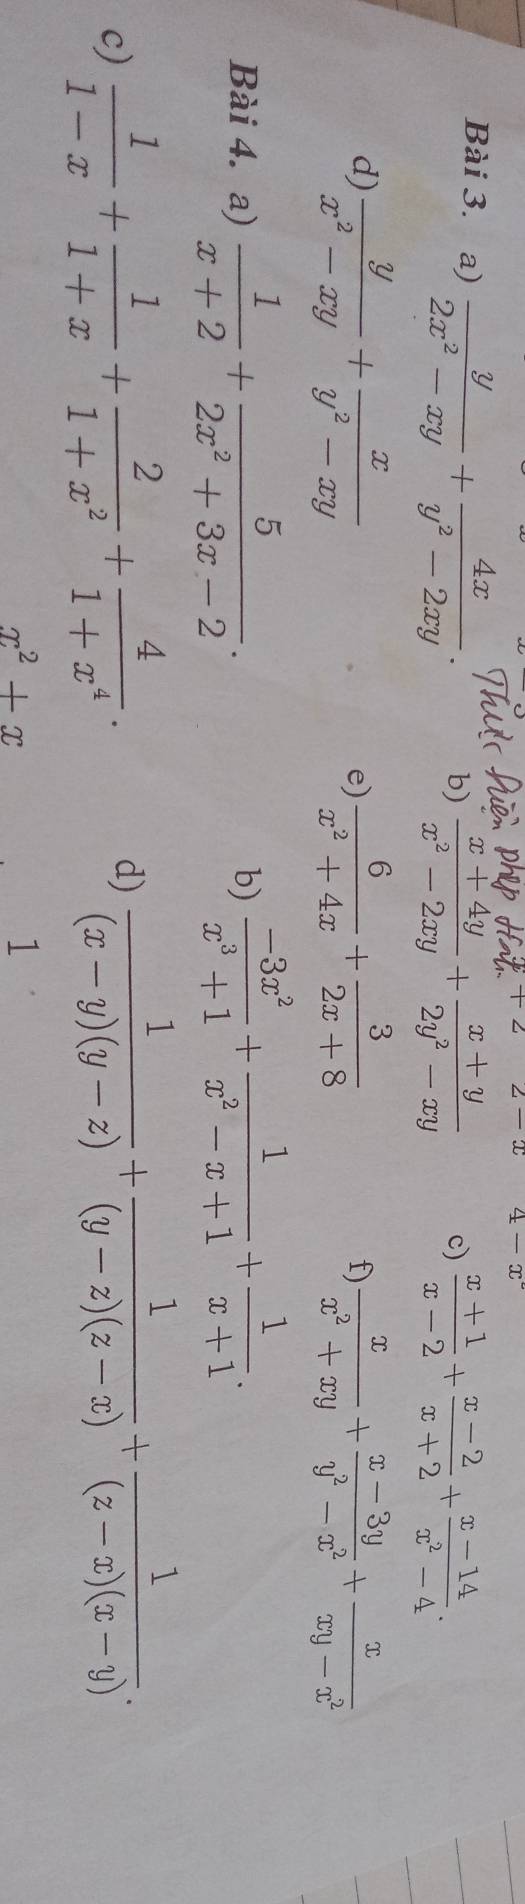 x + 2   2 − x   4 − x²
Thực hiện phép tính
Bài 3. a) \frac{y}{2x² − xy} + \frac{4x}{y² − 2xy}.   b) \frac{x + 4y}{x² − 2xy} + \frac{x + y}{2y² − xy}   c) \frac{x + 1}{x − 2} + \frac{x − 2}{x + 2} + \frac{x − 14}{x² − 4}.
d) \frac{y}{x² − xy} + \frac{x}{y² − xy}   e) \frac{6}{x² + 4x} + \frac{3}{2x + 8}   f) \frac{x}{x² + xy} + \frac{x − 3y}{y² − x²} + \frac{x}{xy − x²}
Bài 4. a) \frac{1}{x + 2} + \frac{5}{2x² + 3x − 2}.   b) \frac{−3x²}{x³ + 1} + \frac{1}{x² − x + 1} + \frac{1}{x + 1}.
c) \frac{1}{1 − x} + \frac{1}{1 + x} + \frac{2}{1 + x²} + \frac{4}{1 + x⁴}.   d) \frac{1}{(x − y)(y − z)} + \frac{1}{(y − z)(z − x)} + \frac{1}{(z − x)(x − y)}.
x² + x   1